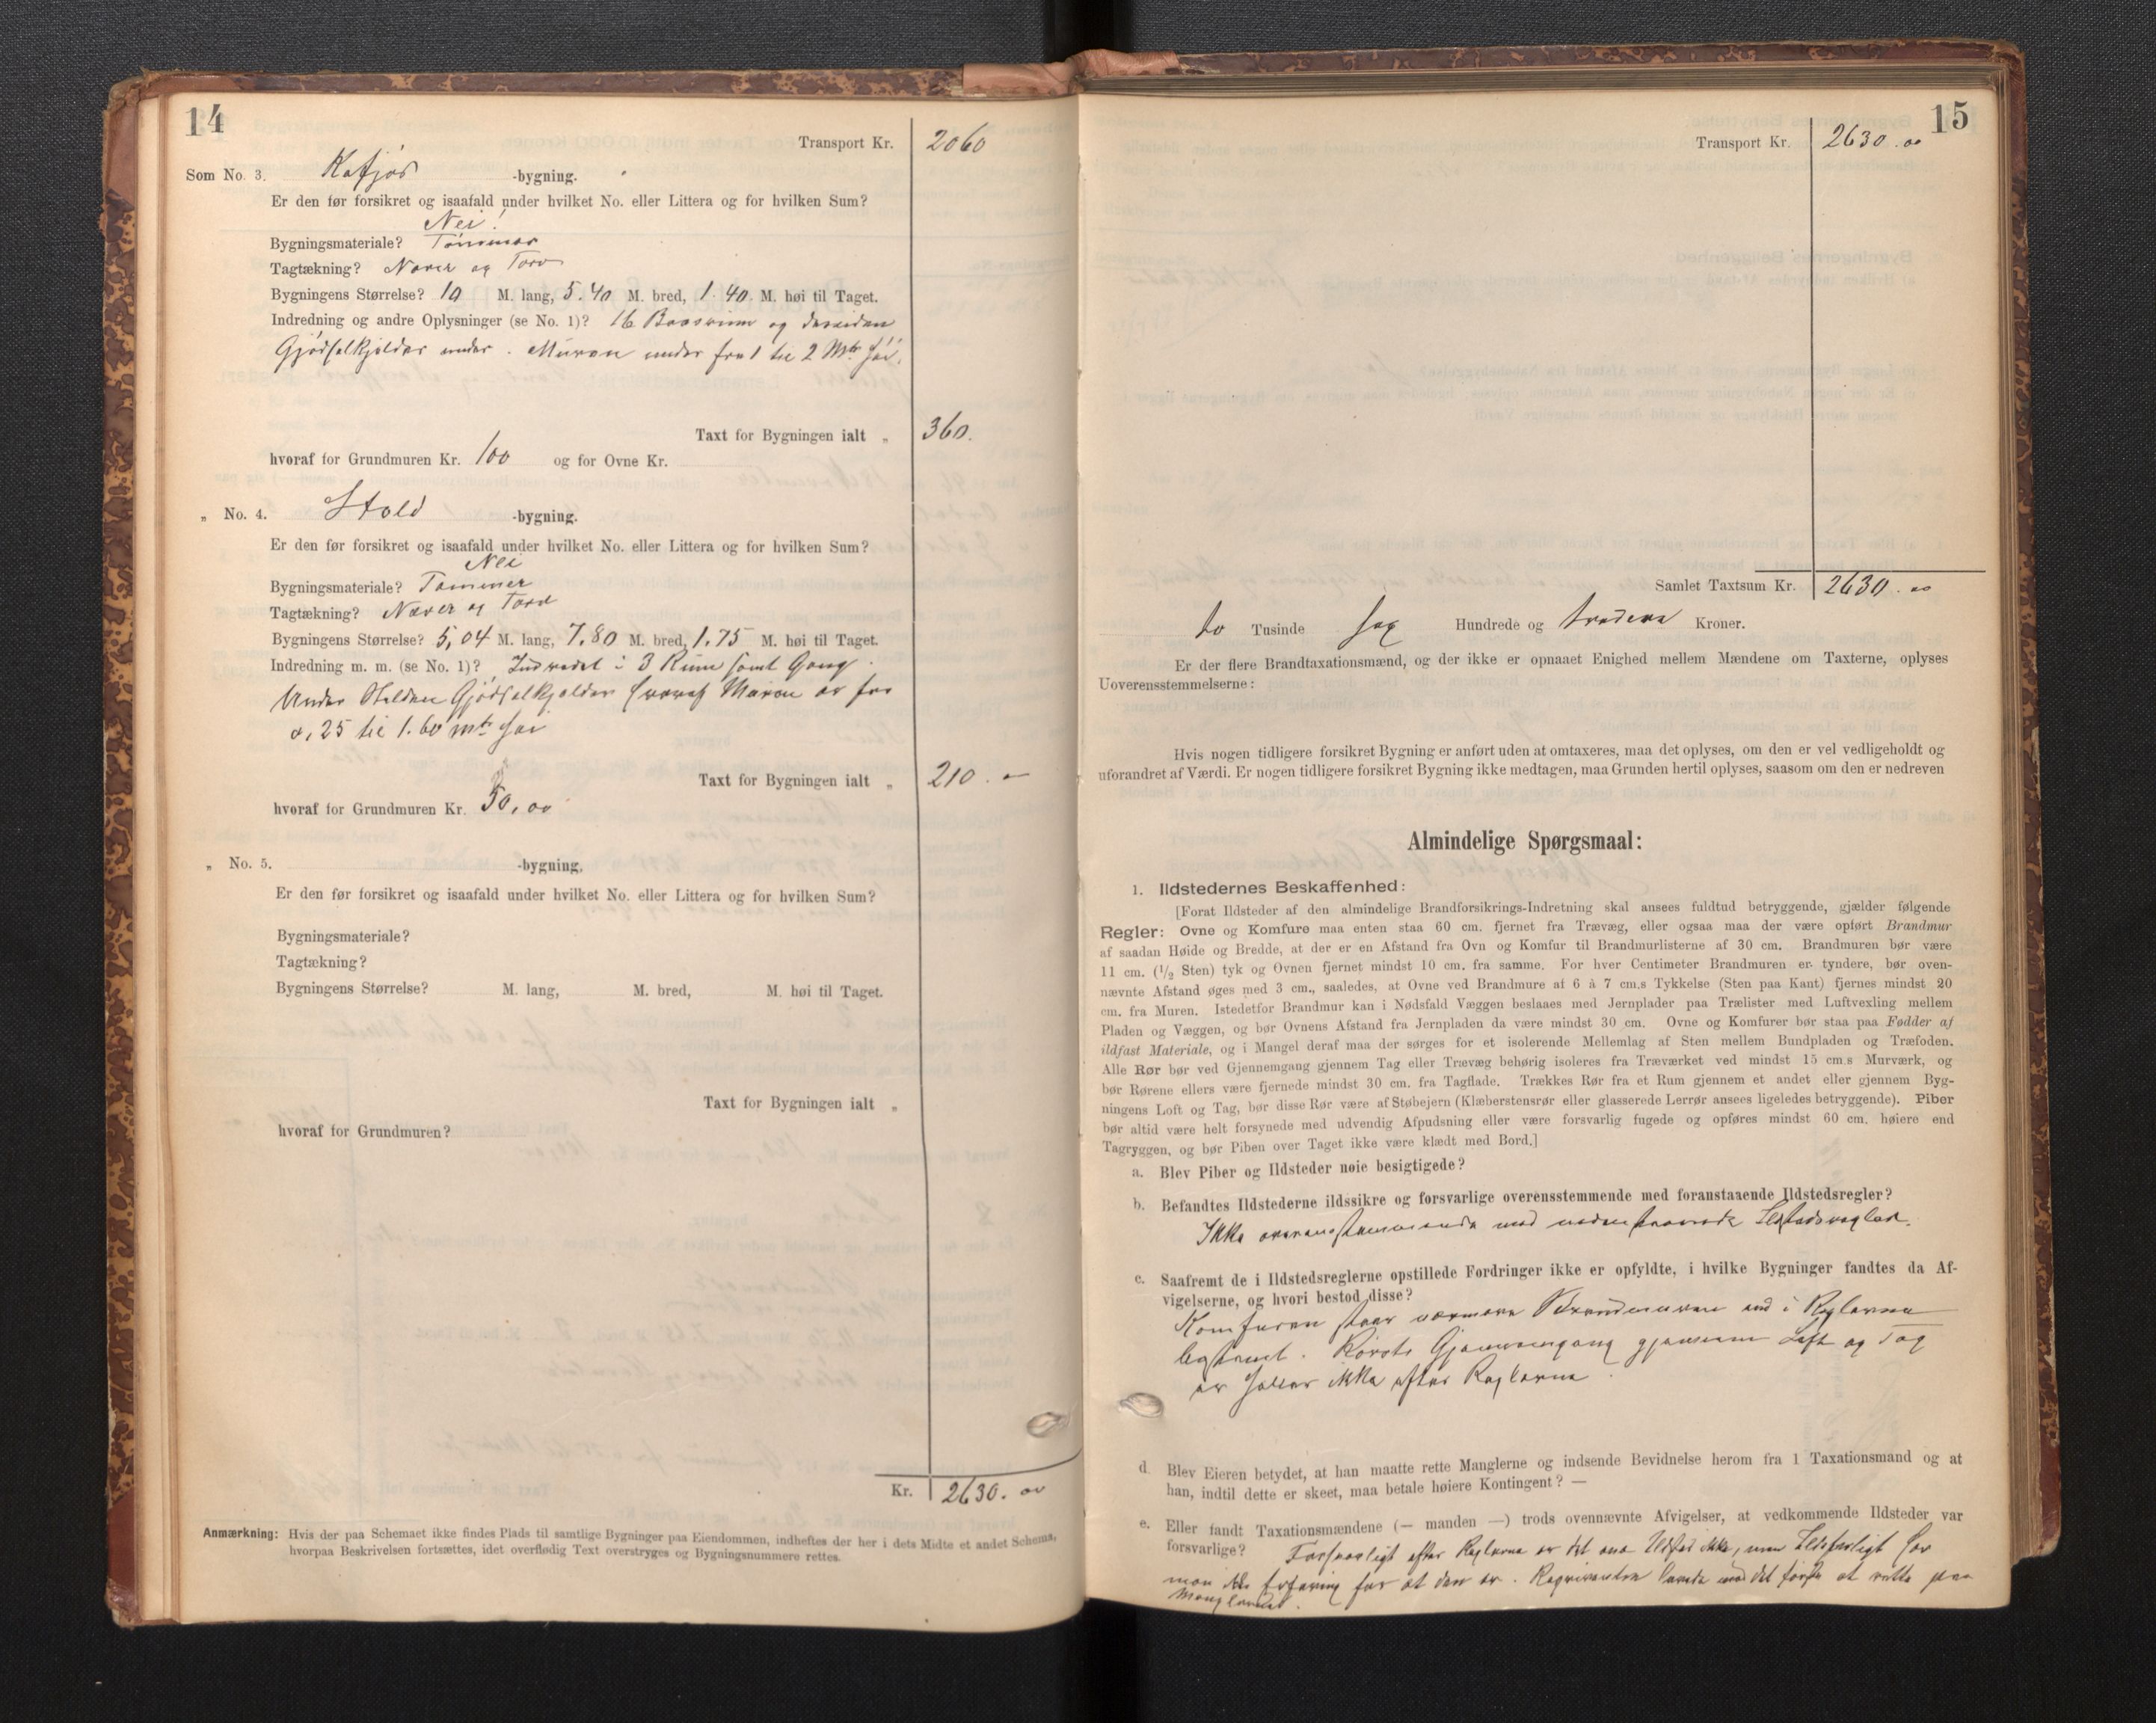 14
Transport Kr. 2060
Som No. 3. Kofjøs -bygning.
Er den før forsikret og isaafald under hvilket No. eller Littera og for hvilken Sum?
Nei!
Bygningsmateriale? Tømmer
Tagtækning? Næver og Torv
Bygningens Størrelse? 10 M. lang, 5.40 M. bred, 1.40 M. høi til Taget.
Indredning og andre Oplysninger (se No. 1)? 16 Baasrum og desuden
Gjødselkjelder under. Muren under fra 1 til 2 Mtr høi.
Taxt for Bygningen ialt „ 360.
hvoraf for Grundmuren Kr. 100 og for Ovne Kr.
„ No. 4. Stald -bygning.
Er den før forsikret og isaafald under hvilket No. eller Littera og for hvilken Sum?
Nei
Bygningsmateriale? Tømmer
Tagtækning? Næver og Torv
Bygningens Størrelse? 5,04 M. lang, 7.80 M. bred, 1.75 M. høi til Taget.
Indredning m. m. (se No. 1)? Indredet i 3 Rum samt Gang.
Under Stalden Gjødselkjelder hvoraf Muren er fra
0,25 til 1.60 mtr høi
Taxt for Bygningen ialt „ 210. —
hvoraf for Grundmuren Kr. 50,00
„ No. 5. -bygning.
Er den før forsikret og isaafald under hvilket No. eller Littera og for hvilken Sum?
Bygningsmateriale?
Tagtækning?
Bygningens Størrelse? M. lang, M. bred, M. høi til Taget.
Taxt for Bygningen ialt „
hvoraf for Grundmuren?
Kr. 2630.00
Anmærkning: Hvis der paa Schemaet ikke findes Plads til samtlige Bygninger paa Eiendommen, indheftes der her i dets Midte et andet Schema,
hvorpaa Beskrivelsen fortsættes, idet overflødig Text overstryges og Bygningsnummere rettes.
15
Transport Kr. 2630.00
Samlet Taxtsum Kr. 2630.00
to Tusinde sex Hundrede og tredeve Kroner.
Er der flere Brandtaxationsmænd, og der ikke er opnaaet Enighed mellem Mændene om Taxterne, oplyses
Uoverensstemmelserne:
Hvis nogen tidligere forsikret Bygning er anført uden at omtaxeres, maa det oplyses, om den er vel vedligeholdt og
uforandret af Værdi. Er nogen tidligere forsikret Bygning ikke medtagen, maa Grunden hertil oplyses, saasom om den er nedreven
Almindelige Spørgsmaal:
1. Ildstedernes Beskaffenhed:
[Forat Ildsteder af den almindelige Brandforsikrings-Indretning skal ansees fuldtud betryggende, gjælder følgende
Regler: Ovne og Komfure maa enten staa 60 cm. fjernet fra Trævæg, eller ogsaa maa der være opført Brandmur
af saadan Høide og Bredde, at der er en Afstand fra Ovn og Komfur til Brandmurlisterne af 30 cm. Brandmuren bør være
11 cm. (1/2 Sten) tyk og Ovnen fjernet mindst 10 cm. fra samme. For hver Centimeter Brandmuren er tyndere, bør oven-
nævnte Afstand øges med 3 cm., saaledes, at Ovne ved Brandmure af 6 à 7 cm.s Tykkelse (Sten paa Kant) fjernes mindst 20
cm. fra Muren. Istedetfor Brandmur kan i Nødsfald Væggen beslaaes med Jernplader paa Trælister med Luftvexling mellem
Pladen og Væggen, og bør Ovnens Afstand fra Jernpladen da være mindst 30 cm. Ovne og Komfurer bør staa paa Fødder af
ildfast Materiale, og i Mangel deraf maa der sørges for et isolerende Mellemlag af Sten mellem Bundpladen og Træfoden.
Alle Rør bør ved Gjennemgang gjennem Tag eller Trævæg behørig isoleres fra Træværket ved mindst 15 cm.s Murværk, og
bør Rørene ellers være fjernede mindst 30 cm. fra Tagflade. Trækkes Rør fra et Rum gjennem et andet eller gjennem Byg-
ningens Loft og Tag, bør disse Rør være af Støbejern (Klæberstensrør eller glasserede Lerrør ansees ligeledes betryggende). Piber
bør altid være helt forsynede med udvendig Afpudsning eller være forsvarlig fugede og opføres mindst 60 cm. høiere end
Tagryggen, og bør Piben over Taget ikke være klædt med Bord.]
a. Blev Piber og Ildsteder nøie besigtigede?
b. Befandtes Ildstederne ildssikre og forsvarlige overensstemmende med foranstaaende Ildstedsregler?
Ikke overensstemmende med nedenstaaende Ildstedsregler.
c. Saafremt de i Ildstedsreglerne opstillede Fordringer ikke er opfyldte, i hvilke Bygninger fandtes da Af-
vigelserne, og hvori bestod disse?
Komfuren staar nærmere Brandmuren end i Reglerne
bestemt. Rørets Gjennemgang gjennem Loft og Tag
er heller ikke efter Reglerne.
d. Blev Eieren betydet, at han maatte rette Manglerne og indsende Bevidnelse herom fra 1 Taxationsmand og at
han, indtil dette er skeet, maa betale høiere Kontingent? —
e. Eller fandt Taxationsmændene (— manden —) trods ovennævnte Afvigelser, at vedkommende Ildsteder var
forsvarlige? Forsvarligt efter Reglerne er det ene Ildsted ikke, men Ildsfarligt har
man ikke Erfaring for at den er. Rekvirenten lovede med det første at rette paa
Manglerne.